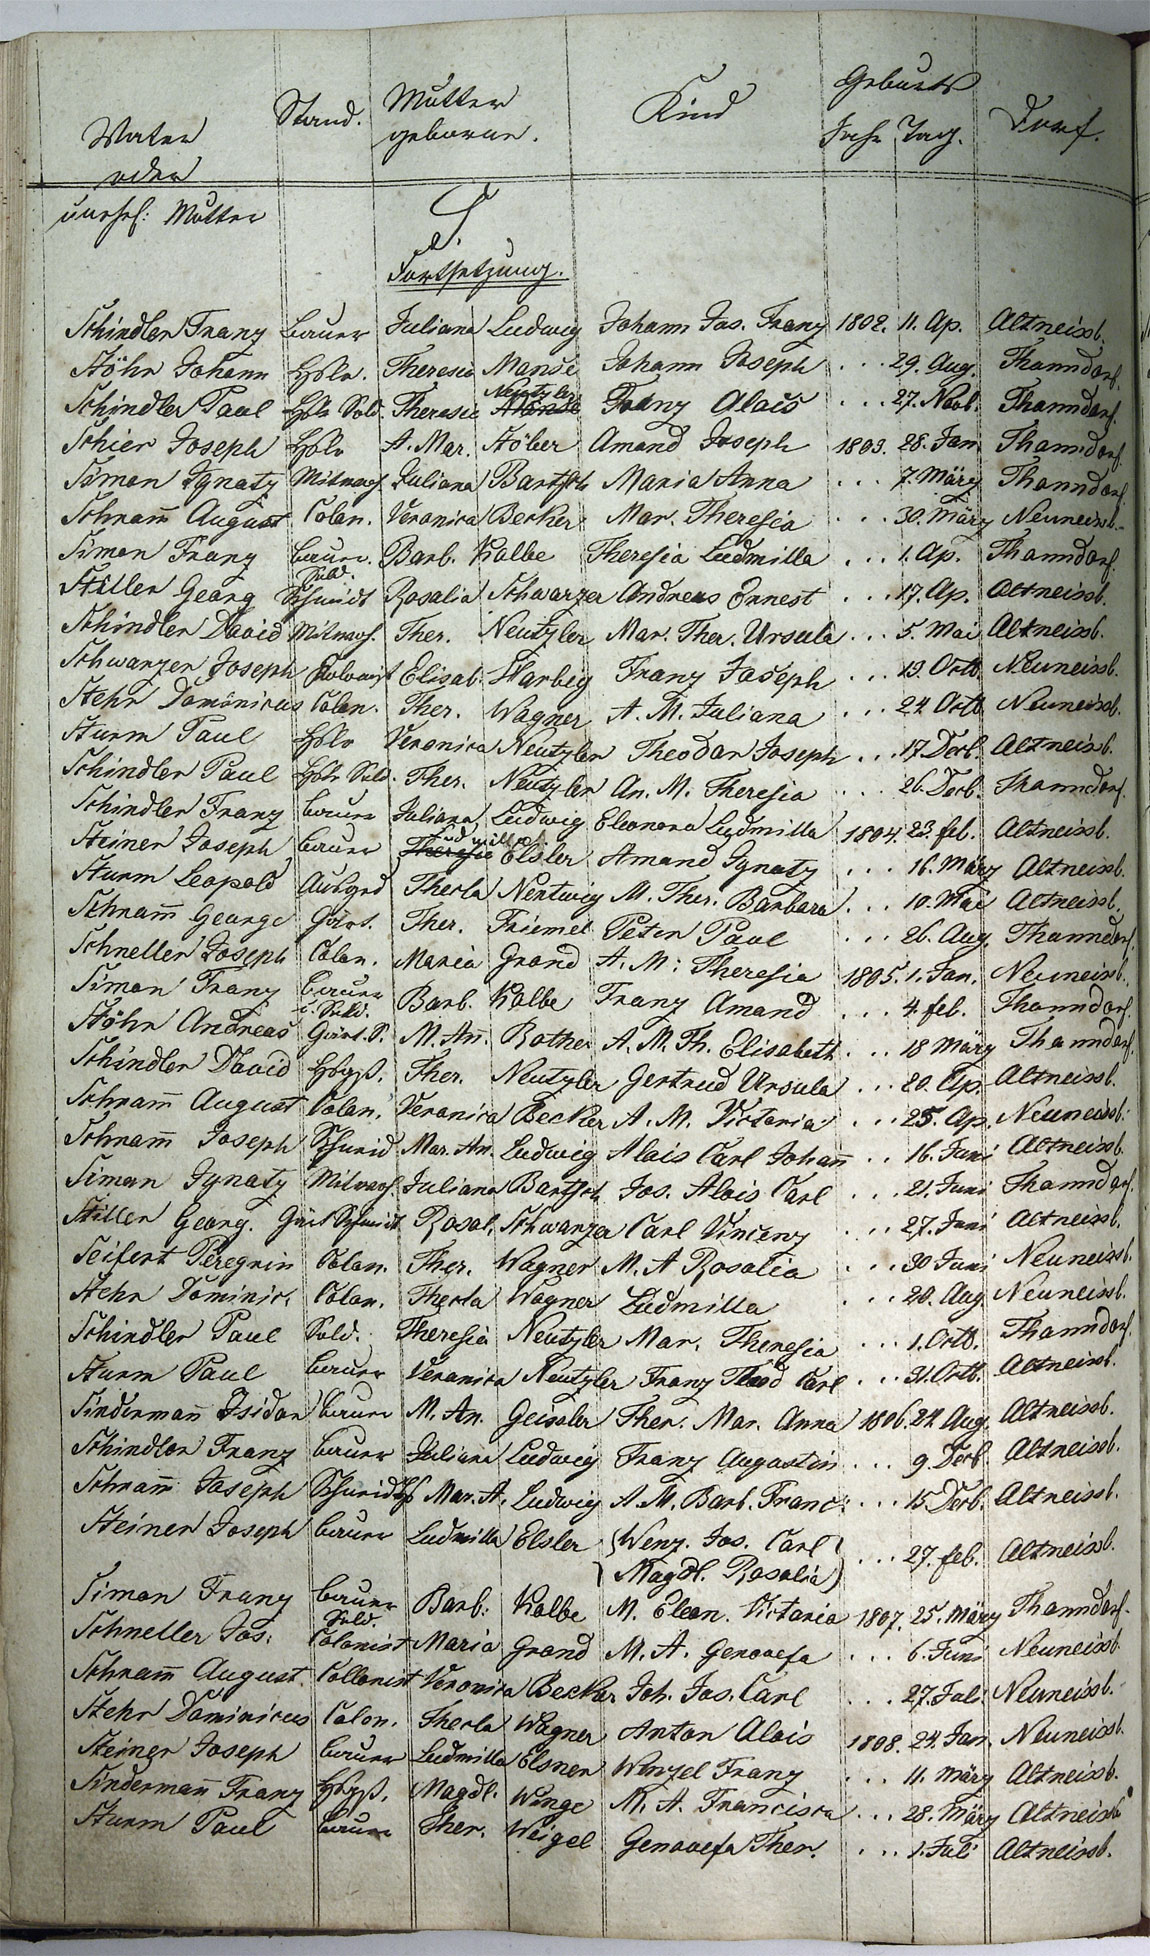 Vater
oder
unehel: Mutter
Stand.
Mutter
geborne.
Kind
Geburts
Jahr Tag.
Dorf.
S.
Fortsetzung.
Schindler Franz Bauer Juliana Ludwig Johann Jos. Franz 1802. 11. Ap. Altneissb.
Stöhr Johann Hslr. Theresia Manse Johann Joseph ... 29. Aug. Thanndorf.
Schindler Paul Hslr Sold. Theresia Neutzler Franz Alois ... 27. Novb. Thanndorf.
Schier Joseph Hslr A. Mar. Stöber Amand Joseph 1803. 28. Jan Thanndorf.
Simon Ignatz Mitwoh. Juliana Bartsch Maria Anna ... 7. März Thanndorf.
Schram̅ August Colon. Veronica Becker Mar. Theresia ... 30. März Neuneissb.
Simon Franz Bauer. Sold. Barb. Kolbe Theresia Ludmilla ... 1. Ap. Thanndorf.
Stiller Georg Schmidt Rosalia Schwarzer Andreas Ernest ... 17. Ap. Altneissb.
Schindler David Mitwoh. Ther. Neutzler Mar. Ther. Ursula ... 5. Mai Altneissb.
Schwarzer Joseph Kolonist Elisab. Harbig Franz Joseph ... 19. Octb. Neuneissb.
Stehr Dominicus Colon. Ther. Wagner A. M. Juliana ... 24 Octb. Neuneissb.
Sturm Paul Hslr Veronica Neutzler Theodor Joseph ... 17. Decb. Altneissb.
Schindler Paul Hslr Sold. Ther. Neutzler An. M. Theresia ... 26. Decb. Thanndorf.
Schindler Franz Bauer Juliana Ludwig Eleonora Ludmilla 1804. 23. feb. Altneissb.
Steiner Joseph Bauer Ludmilla Elsler Amand Ignatz ... 16. März Altneissb.
Sturm Leopold Ausged Thecla Nentwig M. Ther. Barbara ... 10. Mai Altneissb.
Schram̅ George Gärt. Ther. Friemel Peter Paul ... 26. Aug. Thanndorf.
Schneller Joseph Colon. Maria Grond A. M: Theresia 1805. 1. Jan. Neuneissb.
Simon Franz Bauer u. Sold. Barb. Kolbe Franz Amand ... 4. feb. Thanndorf.
Stöhr Andreas Gärt. S. M. An̅. Rother A. M. Th. Elisabeth ... 18 März Thanndorf.
Schindler David Hsgß. Ther. Neutzler Gertrud Ursula ... 20. Ap. Altneissb.
Schram̅ August Colon. Veronica Becker A. M. Victoria ... 25. Ap. Neuneissb.
Schram̅ Joseph Schmid Mar. An. Ludwig Alois Carl Johan̅ .. 16. Juni Altneissb.
Simon Ignatz Mitwoh. Juliana Bartsch Jos. Alois Carl ... 21. Juni Thanndorf.
Stiller Georg. Gärt Schmidt Rosal. Schwarzer Carl Vincenz ... 27. Juni Altneissb.
Seifert Peregrin Colon. Ther. Wagner M. A Rosalia ... 30 Juni Neuneissb.
Stehr Dominic. Colon. Thecla Wagner Ludmilla ... 20. Aug. Neuneissb.
Schindler Paul Sold. Theresia Neutzler Mar. Theresia ... 1. Octb. Thanndorf.
Sturm Paul Bauer Veronica Neutzler Franz Theod Carl ... 31. Octb. Altneissb.
Sinderman̅ Isidor Bauer M. An. Geissler Ther. Mar. Anna 1806. 24. Aug. Altneissb.
Schindler Franz Bauer Juliana Ludwig Franz Augustin ... 9. Decb. Altneissb.
Schram̅ Joseph Schmid Mar. A. Ludwig A. M. Barb. Franc: ... 15. Decb. Altneissb.
Steiner Joseph Bauer Ludmilla Elsler Wenz. Jos. Carl
Magdl. Rosalia ... 27. feb. Altneissb.
Simon Franz Bauer Sold. Barb: Kolbe M. Eleon. Victoria 1807. 25. März Thanndorf.
Schneller Jos. Colonist Maria Grond M. A. Genovefa ... 6. Juni Neuneissb.
Schram̅ August. Collonist Veronica Becker Joh. Jos. Carl ... 27. Juli Neuneissb.
Stehr Dominicus Colon. Thecla Wagner Anton Alois 1808. 24. Jan. Neuneissb.
Steiner Joseph Bauer Ludmilla Elsner Wenzel Franz ... 11. März Altneissb.
Sinderman̅ Franz Hsgß. Magdl. Winge M. A. Francisca ... 28. März Altneissb
Sturm Paul Bauer Ther. Weigel Genovefa Ther. ... 1. Juli Altneissb.